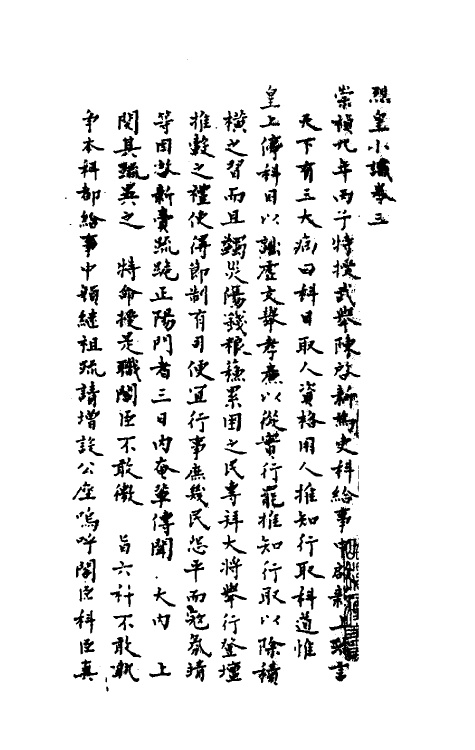 烈皇小識卷三
崇禎九年丙子特授武舉陳啟新為吏科給事中啟新上疏言
天下有三大病曰科目取人資格用人推知行取科道惟
皇上停科目以詘虛文舉孝廉以從實行罷推知行取以除積
橫之習而且蠲災傷錢粮蘇累困之民專拜大將舉行登壇
推轂之禮使得節制有司便宜行事庶幾民怨平而寇氛靖
等因啟新賫疏跪正陽門者三日內奄輩傳聞 大內 上
閱其疏異之 特命授是職閣臣不敢徼 旨六科不敢執
争本科都給事中顏繼祖疏請增設公座嗚呼閣臣科臣真